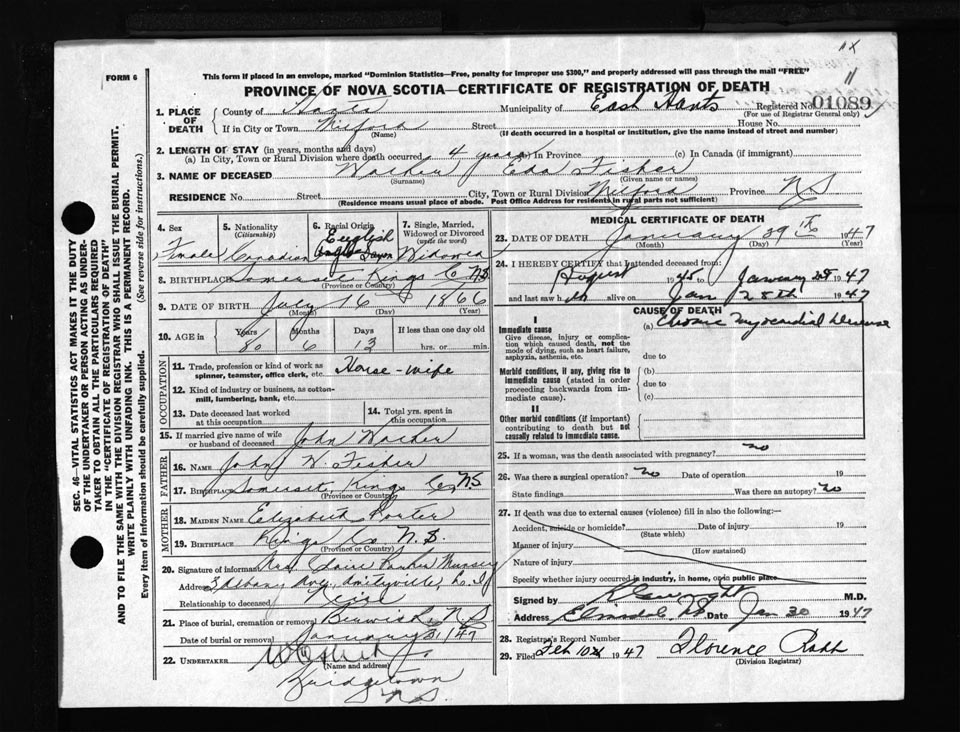 11
FORM 6
This form if placed in an envelope, marked "Dominion Statistics—Free, penalty for improper use $300," and properly addressed will pass through the mail "FREE"
PROVINCE OF NOVA SCOTIA—CERTIFICATE OF REGISTRATION OF DEATH
1. PLACE OF DEATH County of Hants Municipality of East Hants Registered No. 01089
(For use of Registrar General only)
If in City or Town Milford (Name) Street House No.
(If death occurred in a hospital or institution, give the name instead of street and number)
2. LENGTH OF STAY (in years, months and days)
(a) In City, Town or Rural Division where death occurred 4 years (b) In Province (c) In Canada (if immigrant)
3. NAME OF DECEASED Walker Eda Fisher
(Surname) (Given name or names)
RESIDENCE No. Street City, Town or Rural Division Milford Province N S
(Residence means usual place of abode. Post Office Address for residents in rural parts not sufficient)
4. Sex Female
5. Nationality (Citizenship) Canadian
6. Racial Origin English Anglo Saxon
7. Single, Married, Widowed or Divorced (write the word) Widowed
8. BIRTHPLACE Somerset Kings Co NS
(Province or Country)
9. DATE OF BIRTH July 16 1866
(Month) (Day) (Year)
10. AGE in Years 80 Months 6 Days 13 If less than one day old
hrs. or min.
OCCUPATION
11. Trade, profession or kind of work as spinner, teamster, office clerk, etc. House-wife
12. Kind of industry or business, as cotton-mill, lumbering, bank, etc.
13. Date deceased last worked at this occupation
14. Total yrs. spent in this occupation
15. If married give name of wife or husband of deceased John Walker
FATHER
16. NAME John W. Fisher
17. BIRTHPLACE Somerset, Kings Co, N.S.
(Province or Country)
MOTHER
18. MAIDEN NAME Elizabeth Porter
19. BIRTHPLACE Kings Co N.S.
(Province or Country)
20. Signature of informant Mrs. Claire Parker
Address 3 Albany Ave, Amityville, L. I.
Relationship to deceased Neice
21. Place of burial, cremation or removal Berwick, N S
Date of burial or removal January 31/47
22. UNDERTAKER
(Name and address)
Bridgetown
N S.
MEDICAL CERTIFICATE OF DEATH
23. DATE OF DEATH January 29th 1947
(Month) (Day) (Year)
24. I HEREBY CERTIFY that I attended deceased from:
August 1945 to January 28 1947
and last saw her alive on Jan 28th 1947
CAUSE OF DEATH
I
Immediate cause (a) Chronic myocardial Disease
Give disease, injury or complication which caused death, not the mode of dying, such as heart failure, asphyxia, asthenia, etc.
due to
Morbid conditions, if any, giving rise to immediate cause (stated in order proceeding backwards from immediate cause).
(b)
due to
(c)
II
Other morbid conditions (if important) contributing to death but not causally related to immediate cause.
25. If a woman, was the death associated with pregnancy? no
26. Was there a surgical operation? no Date of operation 19
State findings Was there an autopsy? no
27. If death was due to external causes (violence) fill in also the following:—
Accident, suicide or homicide? Date of injury 19
(State which)
Manner of injury
(How sustained)
Nature of injury
Specify whether injury occurred in industry, in home, or in public place
Signed by M.D.
Address Elmsdale, NS Date Jan 30 1947
28. Registrar's Record Number
29. Filed Feb 10 1947 Florence
(Division Registrar)
SEC. 46—VITAL STATISTICS ACT MAKES IT THE DUTY
OF THE UNDERTAKER OR PERSON ACTING AS UNDER-
TAKER TO OBTAIN ALL THE PARTICULARS REQUIRED
IN THE "CERTIFICATE OF REGISTRATION OF DEATH"
AND TO FILE THE SAME WITH THE DIVISION REGISTRAR WHO SHALL ISSUE THE BURIAL PERMIT.
WRITE PLAINLY WITH UNFADING INK. THIS IS A PERMANENT RECORD.
Every item of information should be carefully supplied. (See reverse side for instructions.)